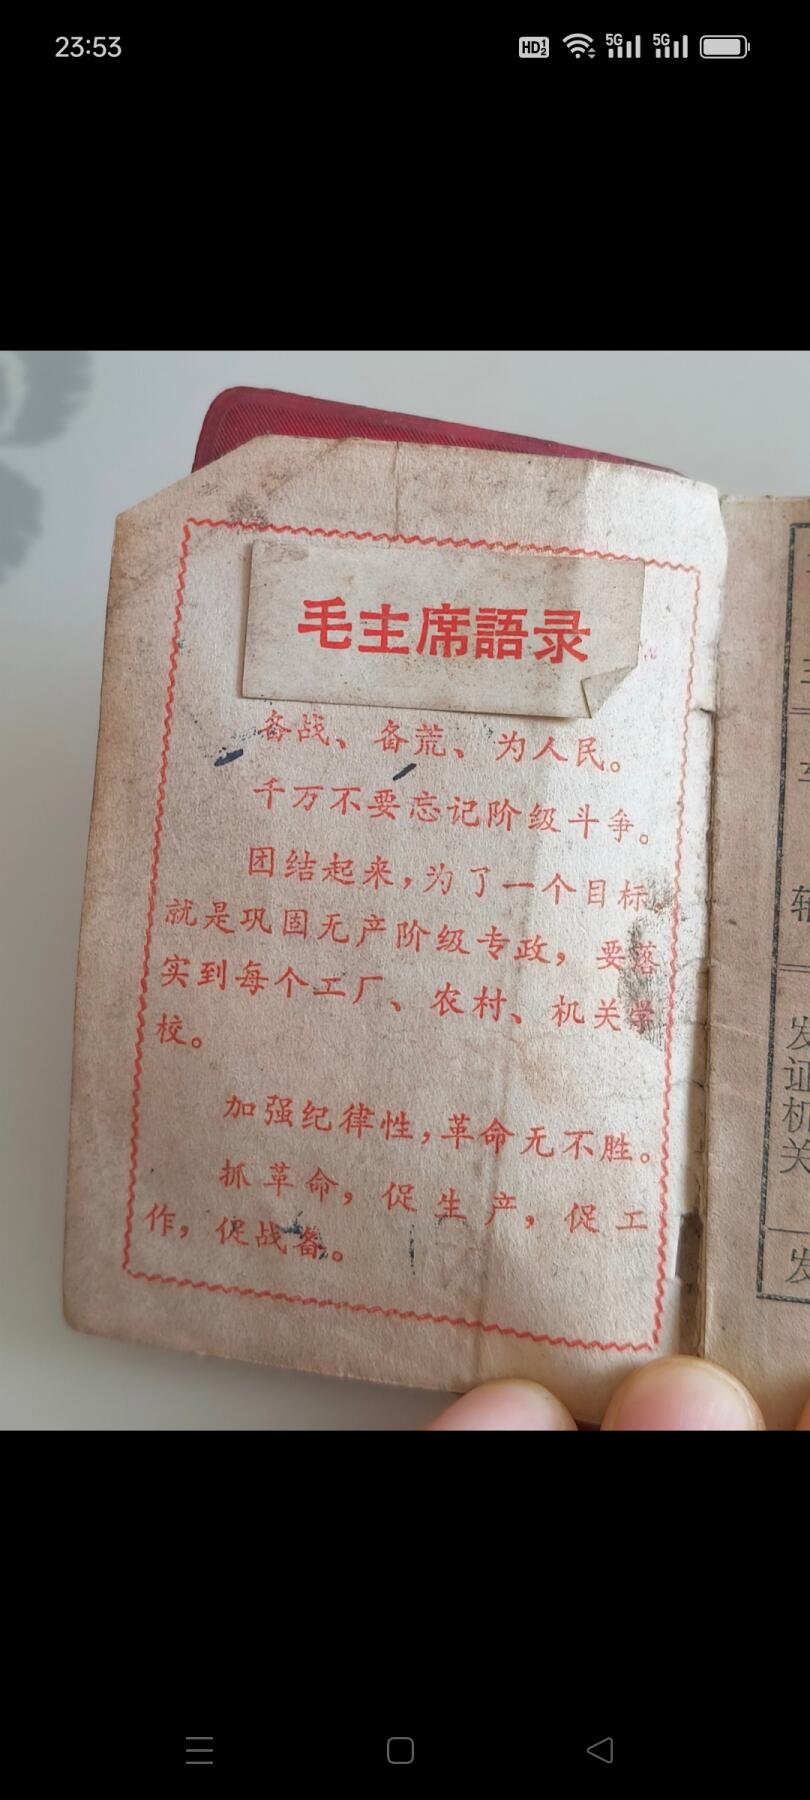 23:53
HD 1 2
5G
5G
毛主席語录
备战、备荒、为人民。
千万不要忘记阶级斗争。
团结起来,为了一个目标,
就是巩固无产阶级专政,要落
实到每个工厂、农村、机关学
校。
加强纪律性,革命无不胜。
抓革命,促生产,促工
作,促战备。
发
证
机
关
发